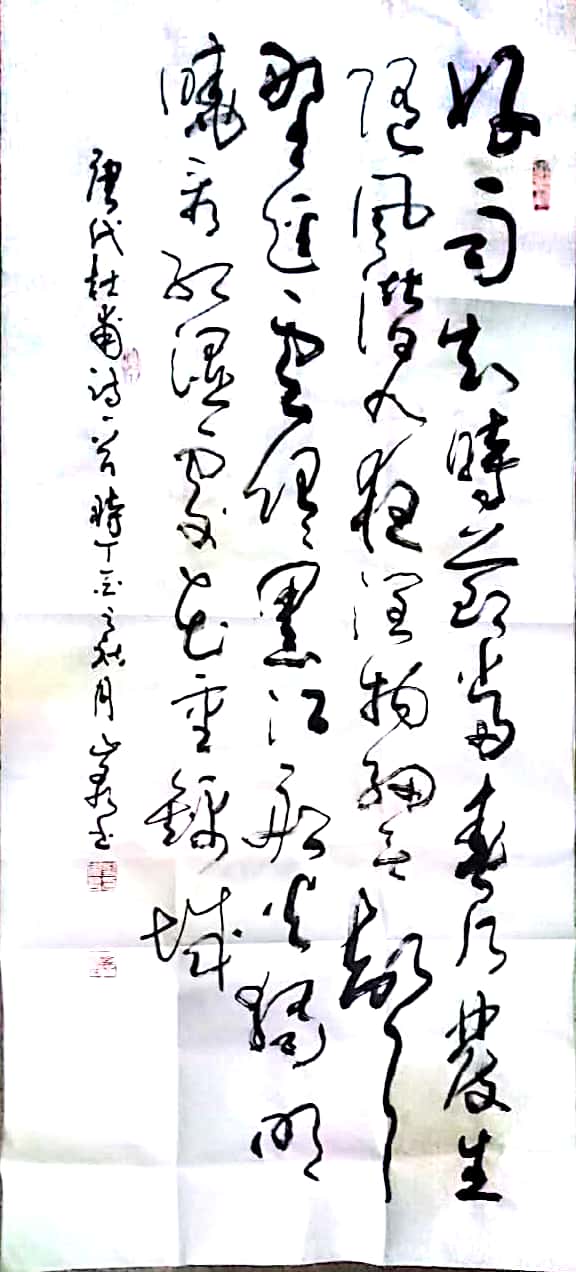 好雨知時節當春乃發生
隨風潛入夜潤物細無聲
野徑雲俱黑江船火獨明
曉看紅濕處花重錦城
唐代杜甫詩一首時丁酉之秋月書